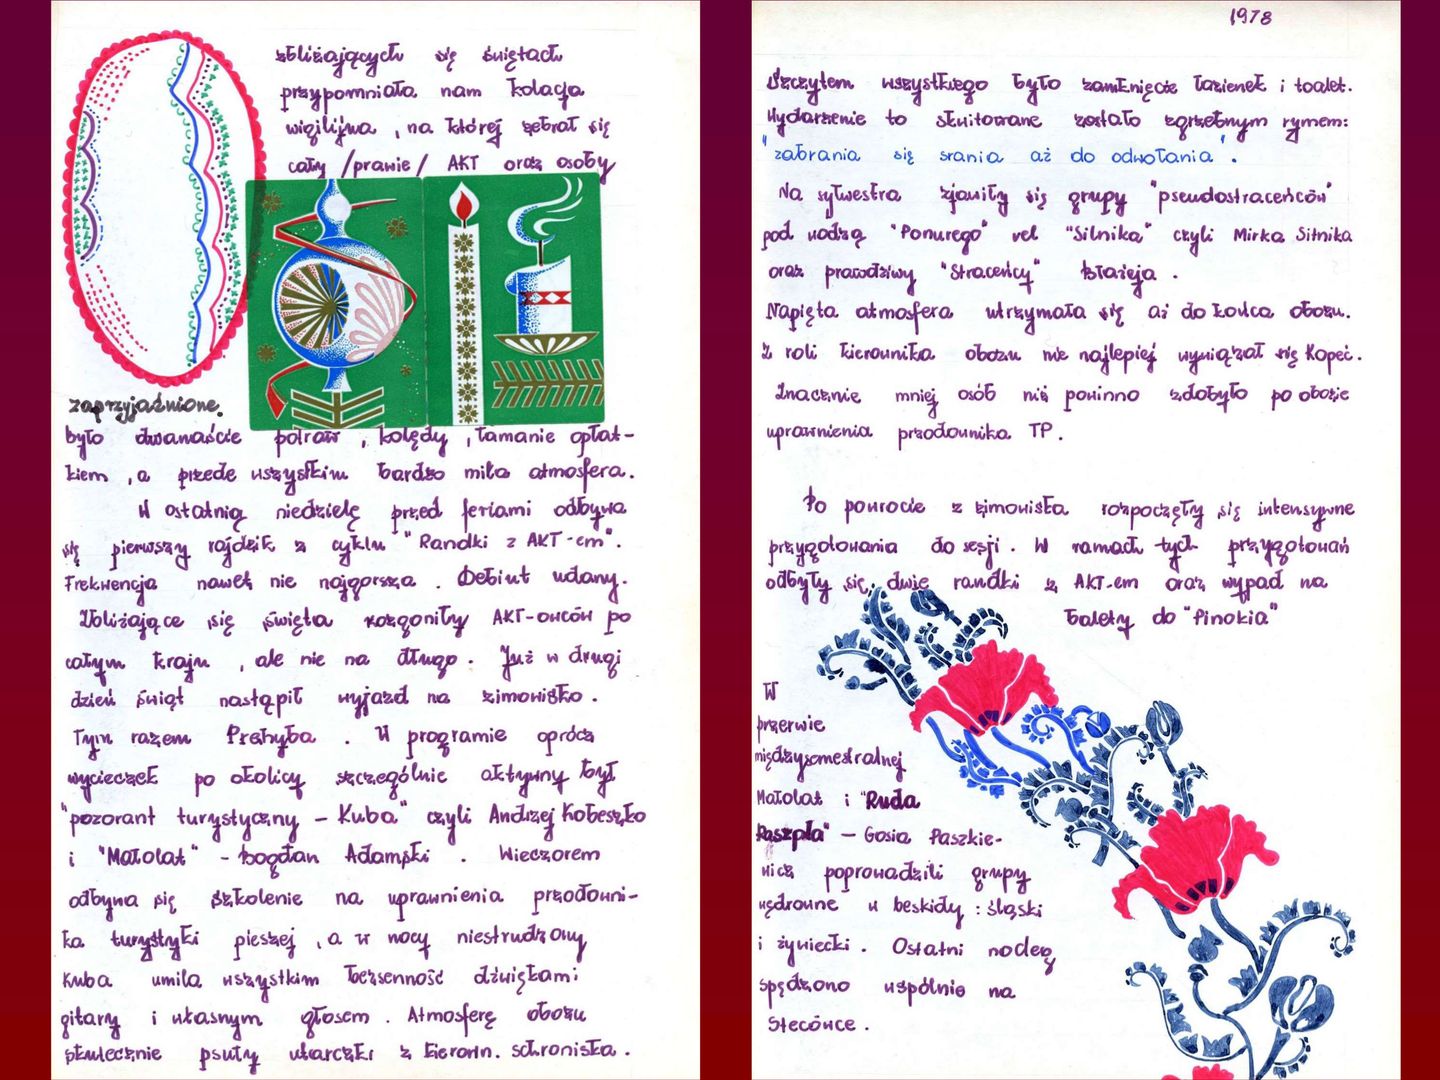 O zbliżających się świętach
przypomniała nam kolacja
wigilijna, na której zebrał się
cały /prawie/ AKT oraz osoby
zaprzyjaźnione.
było dwanaście potraw, kolędy, łamanie opłat-
kiem, a przede wszystkim bardzo miła atmosfera.
W ostatnią niedzielę przed feriami odbywa
się pierwszy rajdzik z cyklu "Randki z AKT-em".
Frekwencja nawet nie najgorsza. Debiut udany.
Zbliżające się święta rozgoniły AKT-owców po
całym kraju, ale nie na długo. Już w drugi
dzień świąt nastąpił wyjazd na zimowisko.
Tym razem Prehyba. W programie oprócz
wycieczek po okolicy szczególnie aktywny był
"pozorant turystyczny - Kuba" czyli Andrzej Kobeszko
i "Małolat" - Bogdan Adamski. Wieczorem
odbywa się szkolenie na uprawnienia przodowni-
ka turystyki pieszej, a w nocy niestrudzony
Kuba umila wszystkim bezsenność dźwiękami
gitary i własnym głosem. Atmosferę obozu
skutecznie psuły utarczki z kierown. schroniska.
1978
Szczytem wszystkiego było zamknięcie łazienek i toalet.
Wydarzenie to skwitowane zostało zgrzebnym rymem:
"zabrania się srania aż do odwołania".
Na sylwestra zjawiły się grupy "pseudostraceńców"
pod wodzą "Ponurego" vel "Silnika" czyli Mirka Sitnika
oraz prawdziwy "Straceńcy" Błażeja.
Napięta atmosfera utrzymała się aż do końca obozu.
Z roli kierownika obozu nie najlepiej wywiązał się Kopeć.
Znacznie mniej osób niż powinno zdobyło po obozie
uprawnienia przodownika TP.
Po powrocie z zimowiska rozpoczęły się intensywne
przygotowania do sesji. W ramach tych przygotowań
odbyły się dwie randki z AKT-em oraz wypad na
balety do "Pinokia"
W
przerwie
międzysemestralnej
Małolat i "Ruda
Paszpla" - Gosia Paszkie-
wicz poprowadzili grupy
wędrowne w beskidy: śląski
i żywiecki. Ostatni nocleg
spędzono wspólnie na
Stecówce.